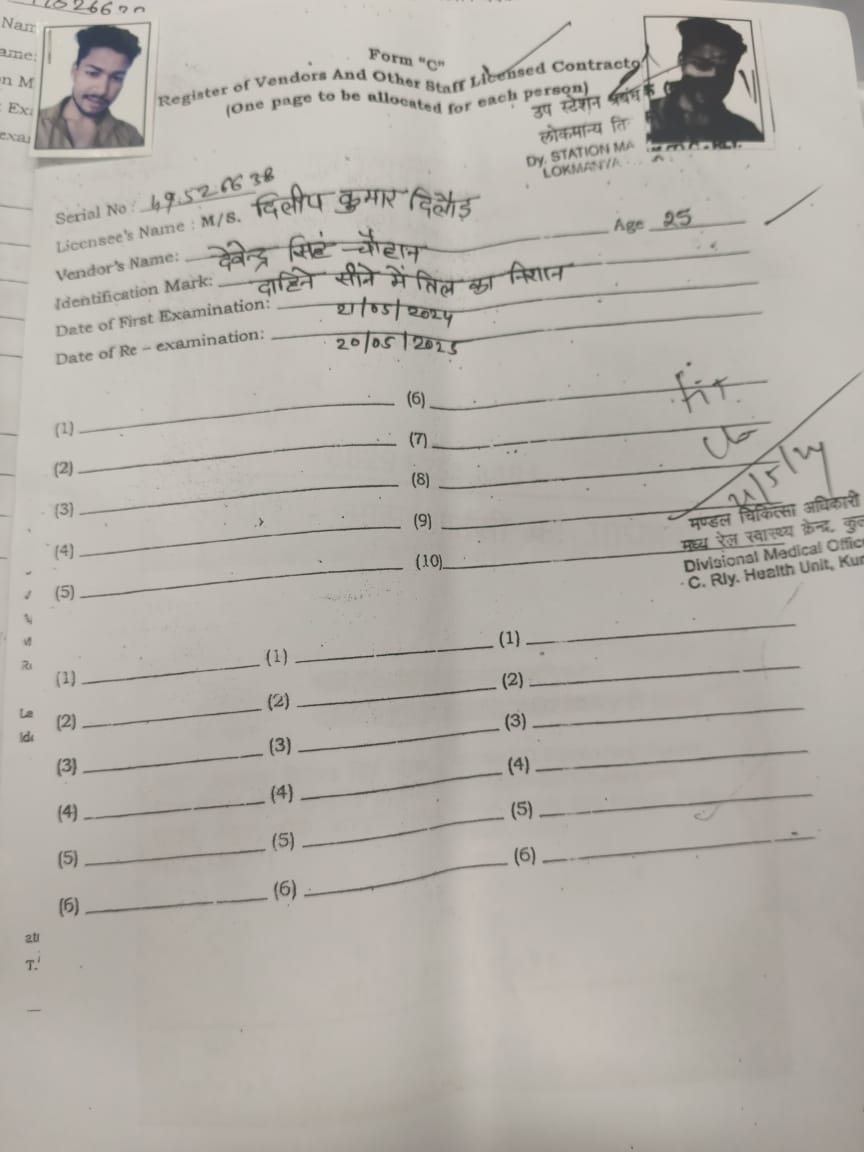 Form "C"
Register of Vendors And Other Staff Licensed Contracto
(One page to be allocated for each person)
उप स्टेशन प्रबंधक
लोकमान्य ति
Dy. STATION MA
LOKMANYA
Serial No :
Licensee's Name : M/S. दिलीप कुमार दिलौड़
Age 25
Vendor's Name: देवेन्द्र सिहं चौहान
Identification Mark: दाहिने सीने में तिल का निशान
Date of First Examination: 21/05/2024
Date of Re - examination: 20/05/2025
(1) (6) fit
(2) (7)
(3) (8) 21/5/24
(4) (9)
(5) (10)
मण्डल चिकित्सा अधिकारी
मध्य रेल स्वास्थ्य केन्द्र, कुर्ल
Divisional Medical Offic
C. Rly. Health Unit, Kur
(1) (1) (1)
(2) (2) (2)
(3) (3) (3)
(4) (4) (4)
(5) (5) (5)
(6) (6) (6)